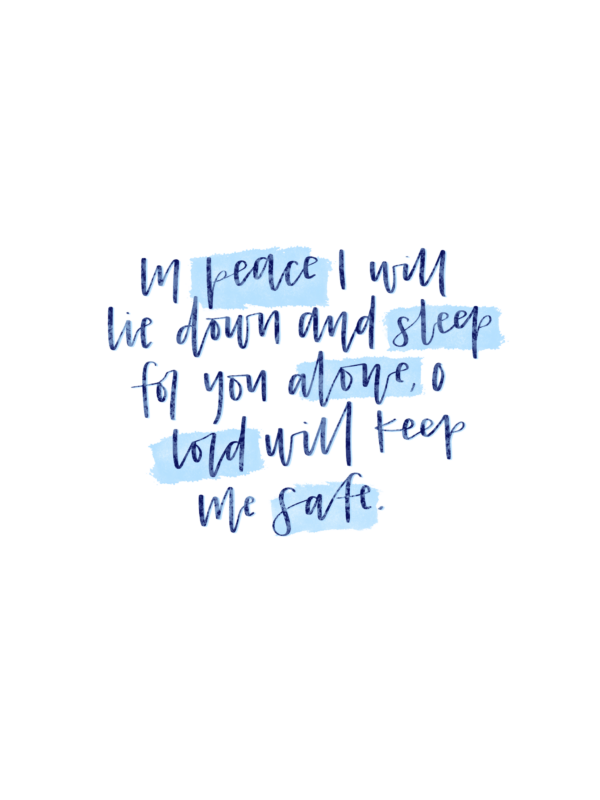 In peace I will
lie down and sleep
for you alone, o
lord will keep
me safe.